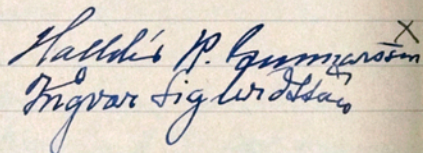 Halldór P. Gunnarsson x
Ingvar Sigurðsson